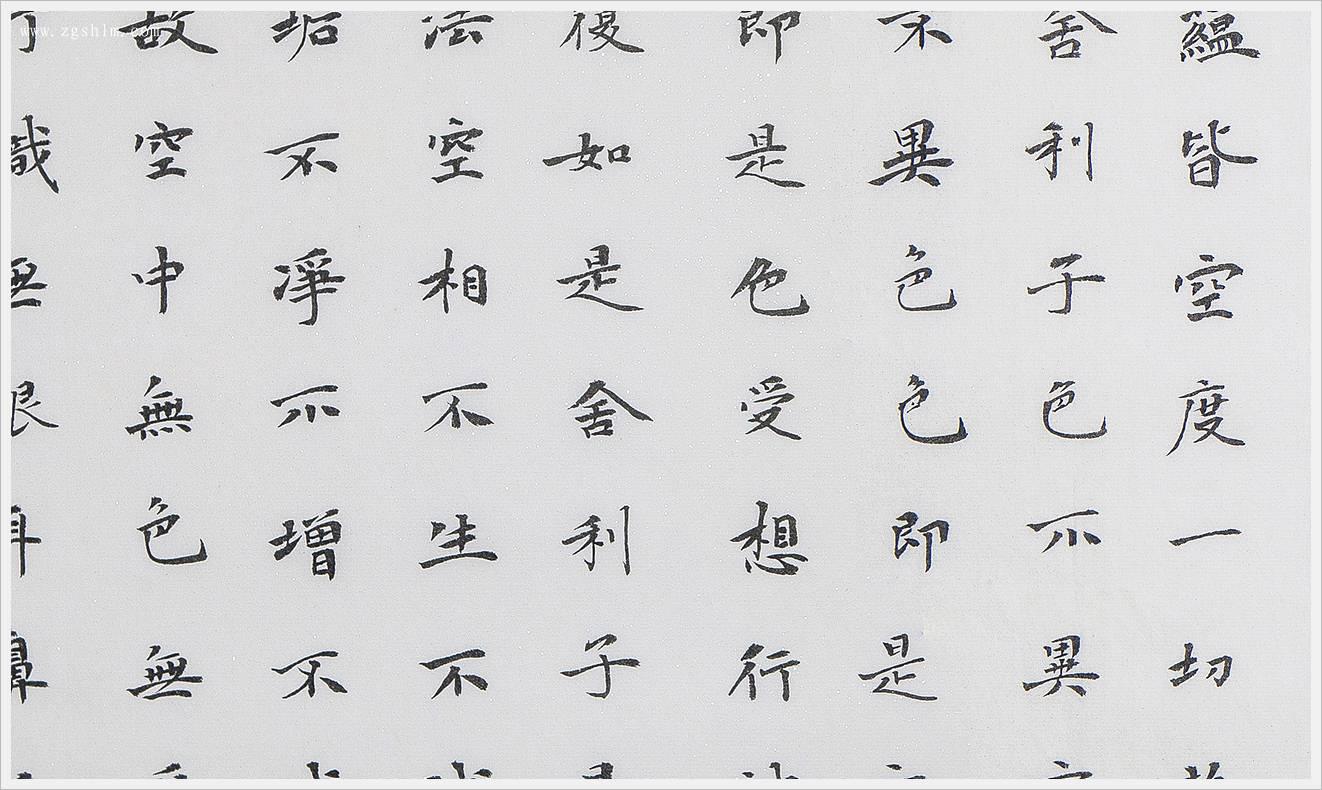 www.zgshlm.com
蘊皆空度一切
舍利子色不異
不異色色即是
即是色受想行
復如是舍利子
法空相不生不
垢不凈不增不
故空中無色無
識無眼耳鼻